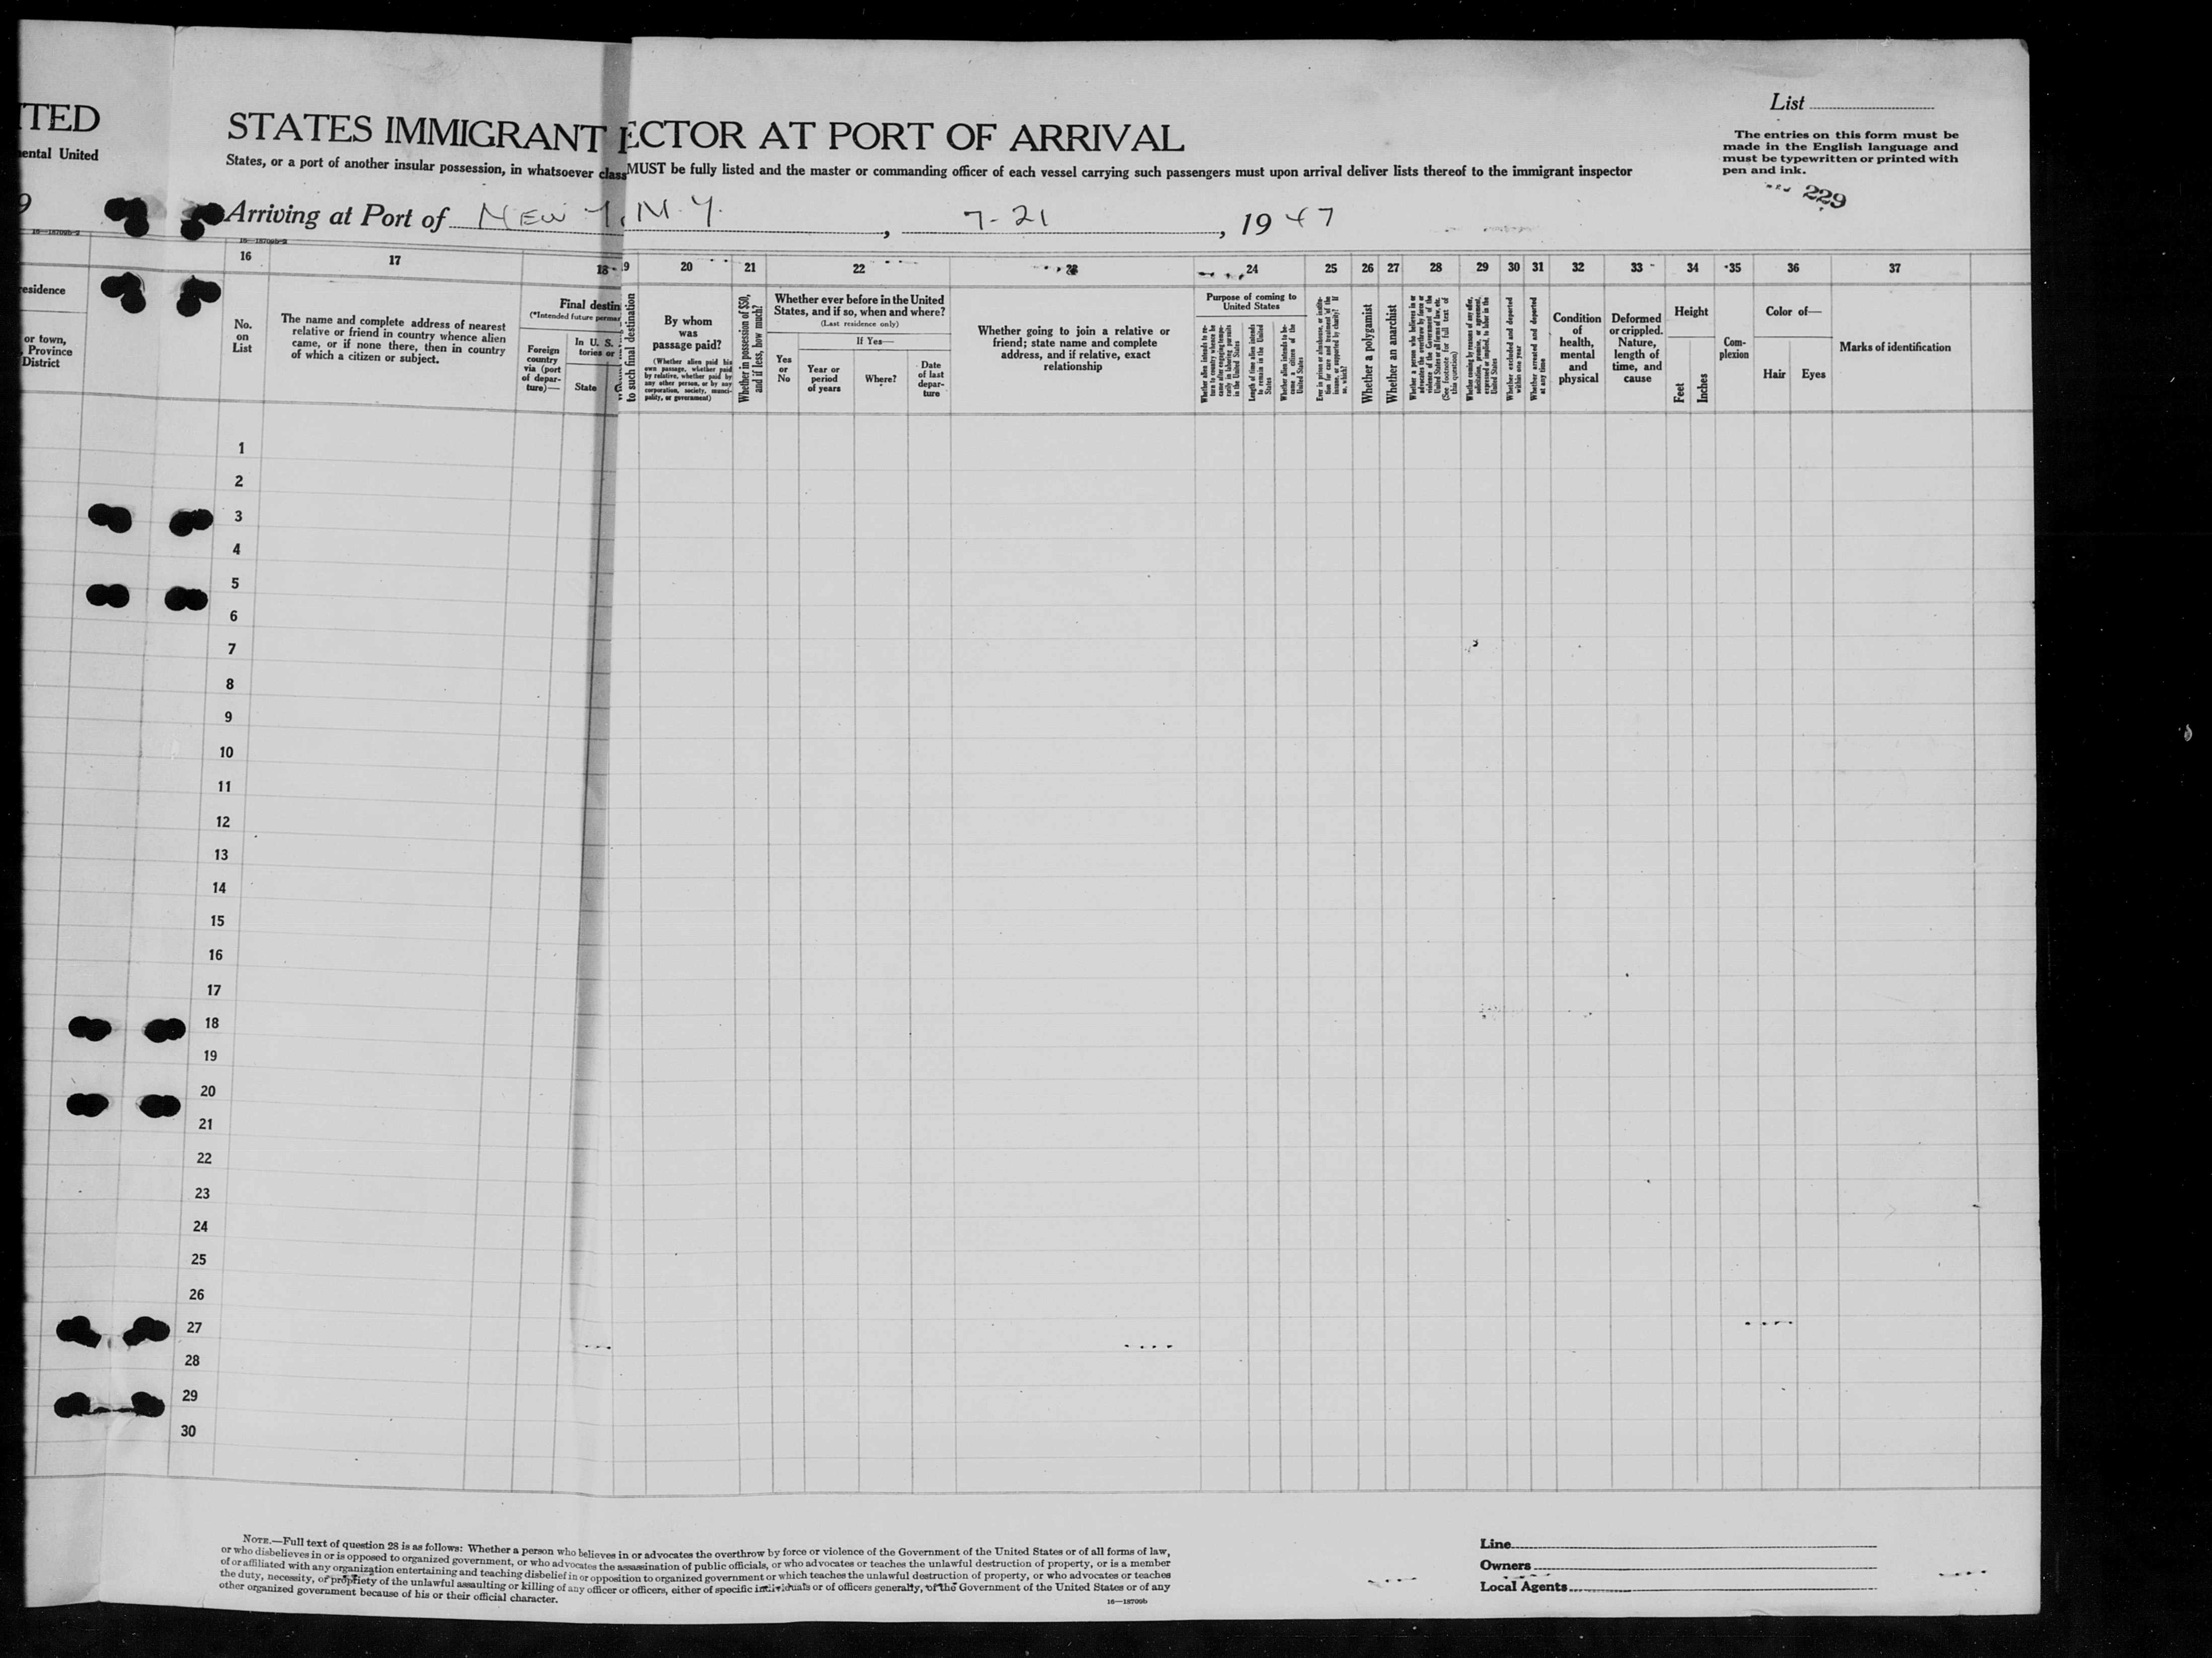 ITED
STATES IMMIGRANT
ECTOR AT PORT OF ARRIVAL
List
ental United
States, or a port of another insular possession, in whatsoever class
MUST be fully listed and the master or commanding officer of each vessel carrying such passengers must upon arrival deliver lists thereof to the immigrant inspector
The entries on this form must be
made in the English language and
must be typewritten or printed with
pen and ink.
229
9
Arriving at Port of NEW Y, N.Y. , 7-21 , 1947
16 17 18 9 20 21 22 23 24 25 26 27 28 29 30 31 32 33 34 35 36 37
esidence
or town,
Province
District
No.
on
List
The name and complete address of nearest
relative or friend in country whence alien
came, or if none there, then in country
of which a citizen or subject.
Final destin
(*Intended future perma
Foreign
country
via (port
of depar-
ture)—
In U. S.
tories or
State
to such final destination
By whom
was
passage paid?
(Whether alien paid his
own passage, whether paid
by relative, whether paid by
any other person, or by any
corporation, society, munici-
pality, or government)
Whether in possession of $50,
and if less, how much?
Whether ever before in the United
States, and if so, when and where?
(Last residence only)
If Yes—
Yes
or
No
Year or
period
of years
Where?
Date
of last
depar-
ture
Whether going to join a relative or
friend; state name and complete
address, and if relative, exact
relationship
Purpose of coming to
United States
Whether alien intends to re-
turn to country whence he
came after engaging tempo-
rarily in laboring pursuits
in the United States
Length of time alien intends
to remain in the United
States
Whether alien intends to be-
come a citizen of the
United States
Ever in prison or almshouse, or institu-
tion for care and treatment of the
insane, or supported by charity? If
so, which?
Whether a polygamist
Whether an anarchist
Whether a person who believes in or
advocates the overthrow by force or
violence of the Government of the
United States or all forms of law, etc.
(See footnote for full text of
this question)
Whether coming by reasons of any offer,
solicitation, promise, or agreement,
expressed or implied, to labor in the
United States
Whether excluded and deported
within one year
Whether arrested and deported
at any time
Condition
of
health,
mental
and
physical
Deformed
or crippled.
Nature,
length of
time, and
cause
Height
Feet
Inches
Com-
plexion
Color of—
Hair
Eyes
Marks of identification
1
2
3
4
5
6
7
8
9
10
11
12
13
14
15
16
17
18
19
20
21
22
23
24
25
26
27
28
29
30
NOTE.—Full text of question 28 is as follows: Whether a person who believes in or advocates the overthrow by force or violence of the Government of the United States or of all forms of law,
or who disbelieves in or is opposed to organized government, or who advocates the assassination of public officials, or who advocates or teaches the unlawful destruction of property, or is a member
of or affiliated with any organization entertaining and teaching disbelief in or opposition to organized government or which teaches the unlawful destruction of property, or who advocates or teaches
the duty, necessity, or propriety of the unlawful assaulting or killing of any officer or officers, either of specific individuals or of officers generally, of the Government of the United States or of any
other organized government because of his or their official character.
16—18709b
Line
Owners
Local Agents